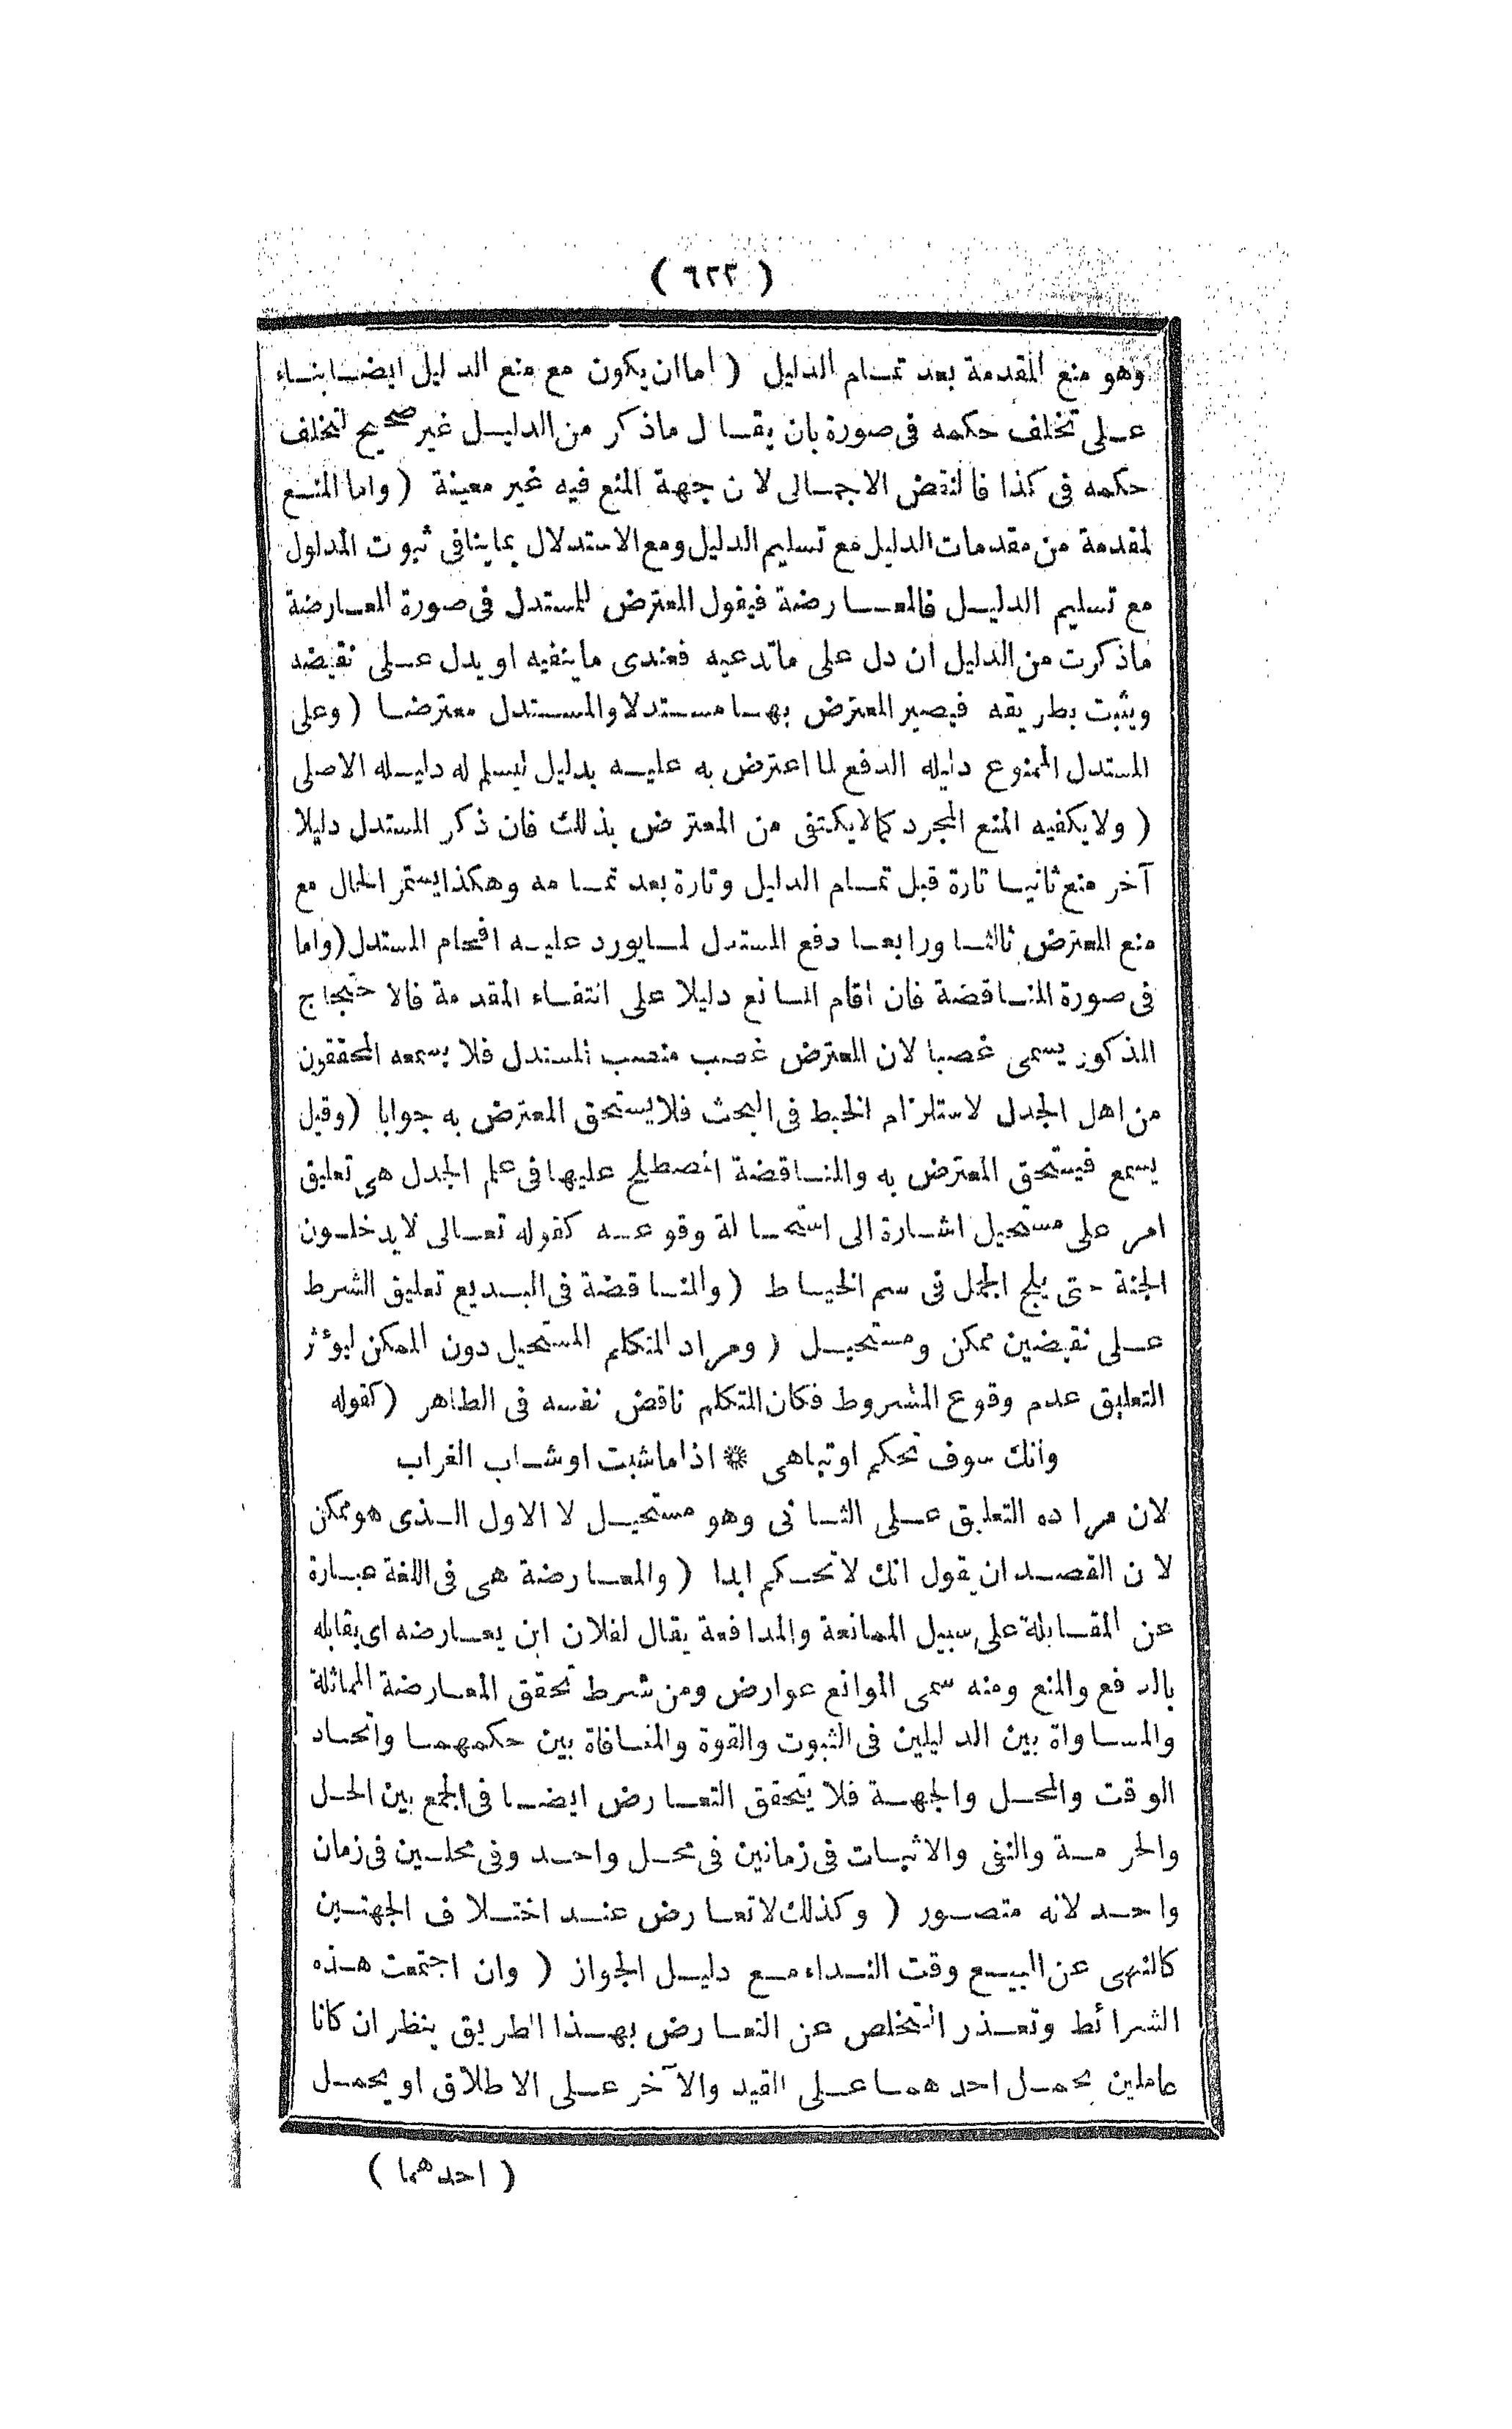 ( ٦٢٢ )
وهو منع المقدمة بعد تمام الدليل ( اما ان يكون مع منع الدليل ايضا بناء
على تخلف حكمه فى صورة بان يقال ماذكر من الدليل غير صحيح لتخلف
حكمه فى كذا فالنقض الاجمالى لان جهة المنع فيه غير معينة ( واما المنع
لمقدمة من مقدمات الدليل مع تسليم الدليل ومع الاستدلال بما ينافى ثبوت المدلول
مع تسليم الدليل فالمعارضة فيقول المعترض للمستدل فى صورة المعارضة
ماذكرت من الدليل ان دل على ماتدعيه فعندى ماينفيه او يدل على نقيضه
ويثبت بطريقه فيصير المعترض بها مستدلا والمستدل معترضا ( وعلى
المستدل الممنوع دليله الدفع لما اعترض به عليه بدليل ليسلم له دليله الاصلى
( ولا يكفيه المنع المجرد كما لا يكتفى من المعترض بذلك فان ذكر المستدل دليلا
آخر منع ثانيا تارة قبل تمام الدليل وتارة بعد تمامه وهكذا يستمر الحال مع
منع المعترض ثالثا ورابعا دفع المستدل لما يورد عليه افحام المستدل (واما
فى صورة المناقضة فان اقام المانع دليلا على انتفاء المقدمة فالاحتجاج
المذكور يسمى غصبا لان المعترض غصب منصب المستدل فلا يسمعه المحققون
من اهل الجدل لاستلزام الخبط فى البحث فلا يستحق المعترض به جوابا (وقيل
يسمع فيستحق المعترض به والمناقضة المصطلح عليها فى علم الجدل هى تعليق
امر على مستحيل اشارة الى استحالة وقوعه كقوله تعالى لا يدخلون
الجنة حتى يلج الجمل فى سم الخياط ( والمناقضة فى البديع تعليق الشرط
على نقيضين ممكن ومستحيل ( ومراد المتكلم المستحيل دون الممكن ليؤثر
التعليق عدم وقوع المشروط فكان المتكلم ناقض نفسه فى الظاهر ( كقوله
وانك سوف تحكم او تباهى ※ اذا ماشبت او شاب الغراب
لان مراده التعليق على الثانى وهو مستحيل لا الاول الذى هو ممكن
لان القصد ان يقول انك لا تحكم ابدا ( والمعارضة هى فى اللغة عبارة
عن المقابلة على سبيل الممانعة والمدافعة يقال لفلان ابن يعارضه اى يقابله
بالدفع والمنع ومنه سمى الموانع عوارض ومن شرط تحقق المعارضة المماثلة
والمساواة بين الدليلين فى الثبوت والقوة والمنافاة بين حكمهما واتحاد
الوقت والمحل والجهة فلا يتحقق التعارض ايضا فى الجمع بين الحل
والحرمة والنفى والاثبات فى زمانين فى محل واحد وفى محلين فى زمان
واحد لانه متصور ( وكذلك لا تعارض عند اختلاف الجهتين
كالنهى عن البيع وقت النداء مع دليل الجواز ( وان اجتمعت هذه
الشرائط وتعذر التخلص عن التعارض بهذا الطريق ينظر ان كانا
عاملين يحمل احدهما على القيد والآخر على الاطلاق او يحمل
( احدهما )